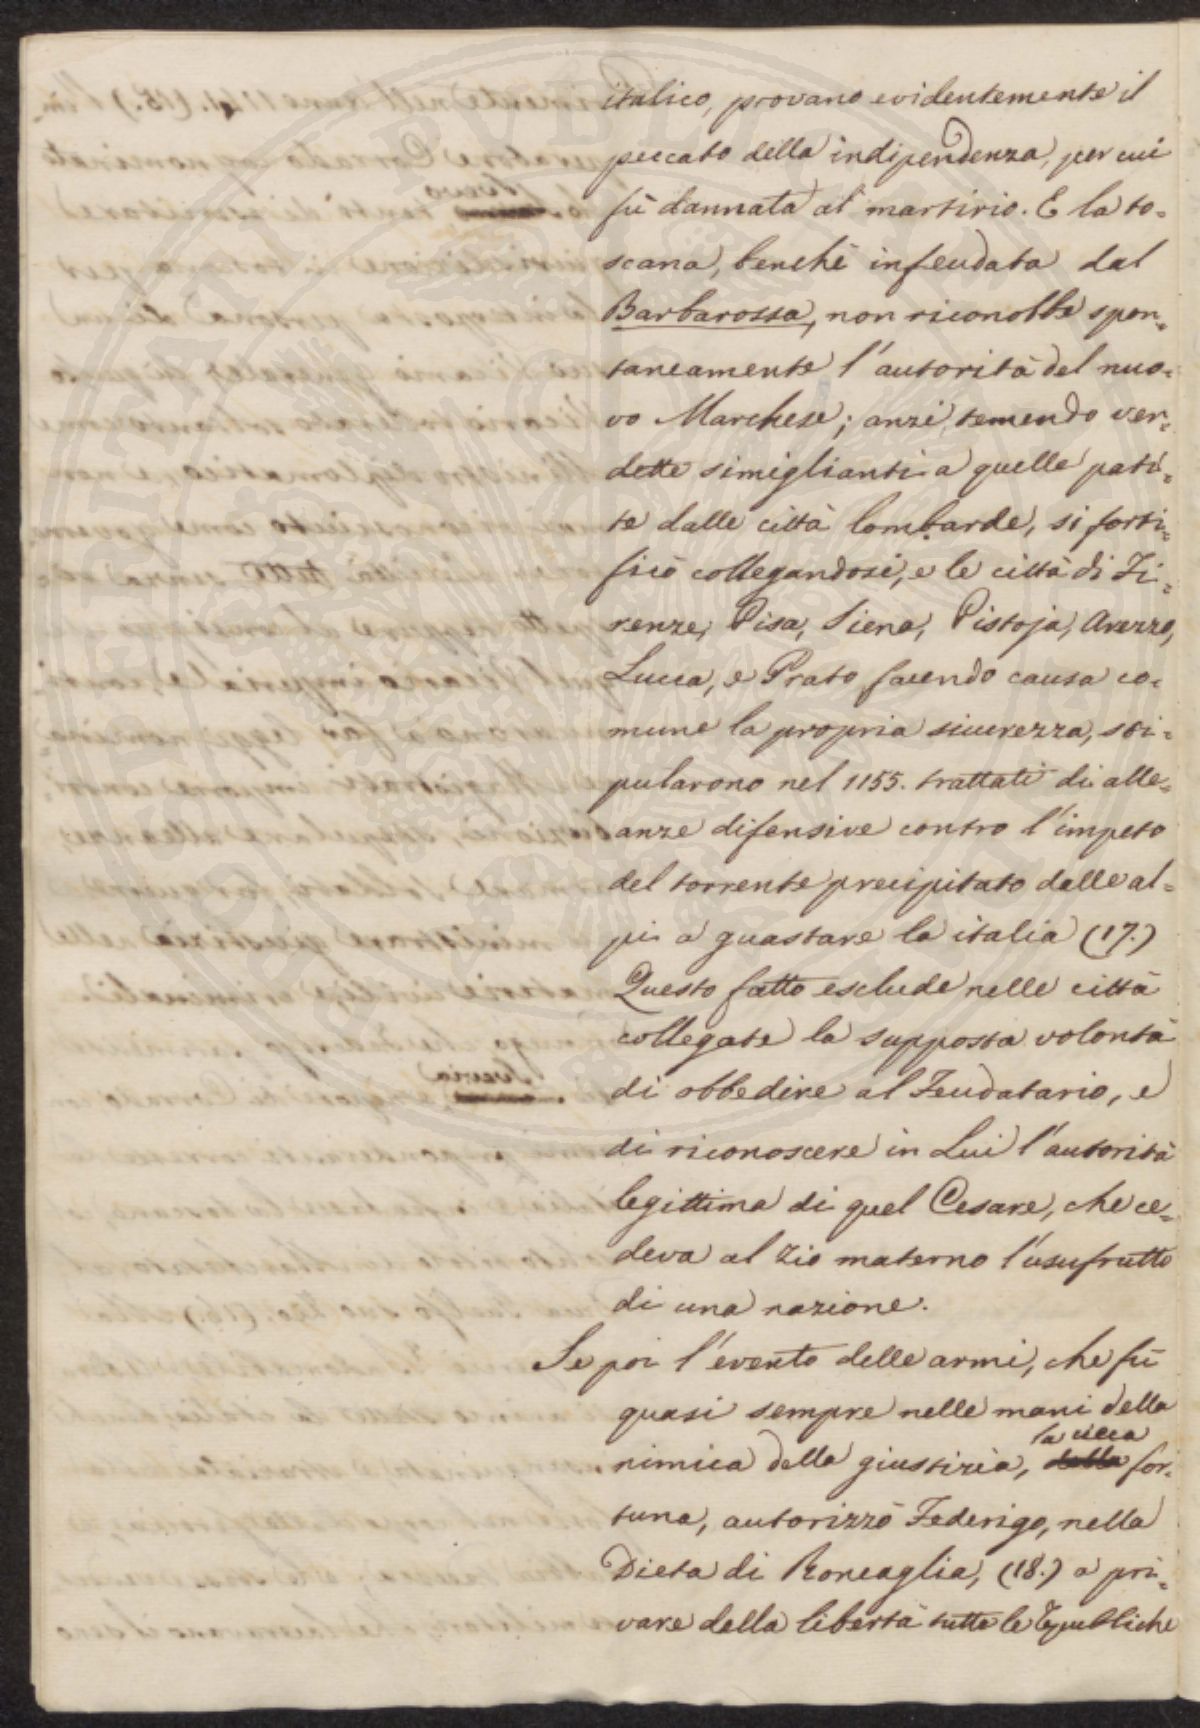 italico, provano evidentemente il
peccato della indipendenza, per cui
fù dannata al martirio. E la to-
scana, benchè infeudata dal
Barbarossa, non riconobbe spon-
taneamente l'autorità del nuo-
vo Marchese; anzi, temendo ver-
dette simiglianti a quelle pati-
te dalle città lombarde, si forti-
ficò collegandosi, e le città di Fi-
renze, Pisa, Siena, Pistoja, Arezzo,
Lucca, e Prato facendo causa co-
mune la propria sicurezza, sti-
pularono nel 1155. trattati di alle-
anze difensive contro l'impeto
del torrente precipitato dalle al-
pi a guastare la italia (17.)
Questo fatto esclude nelle città
collegate la supposta volontà
di obbedire al Feudatario, e
di riconoscere in Lui l'autorità
legittima di quel Cesare, che ce-
deva al zio materno l'usufrutto
di una nazione.
Se poi l'evento delle armi, che fù
quasi sempre nelle mani della
nimica della giustizia, della la cieca for-
tuna, autorizzò Federigo, nella
Dieta di Roncaglia, (18.) a pri-
vare della libertà tutte le Republiche